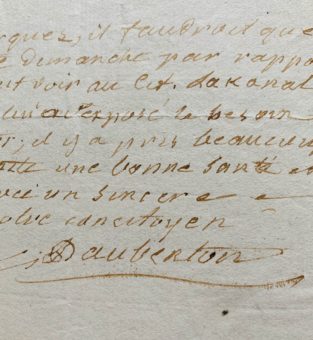 quez, il faudroit que
dimanche par rappo
voir au Cit. Lakanal
exposé le besoin
il y a pris beaucoup
une bonne santé e
un sincere
concitoyen
Daubenton